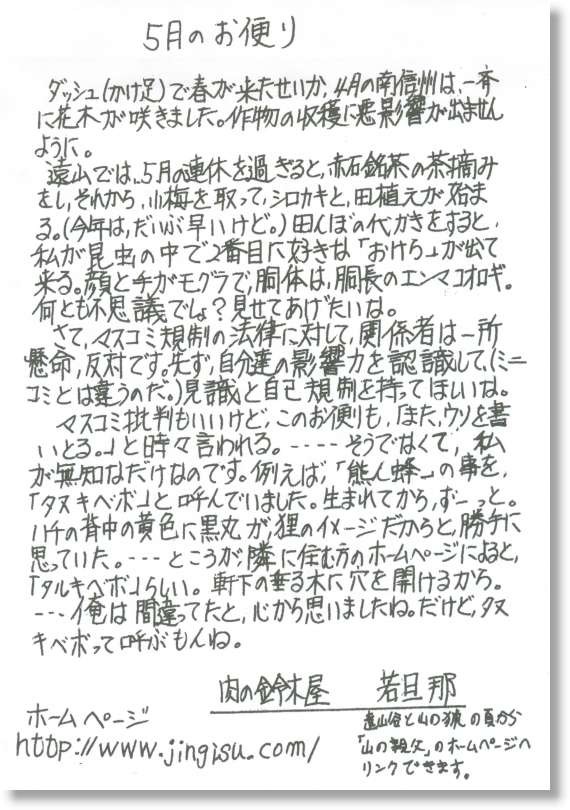 5月のお便り
ダッシュ(かけ足)で春が来たせいか、4月の南信州は、一斉
に花木が咲きました。作物の収穫に悪影響が出ません
ように。
遠山では、5月の連休を過ぎると、赤石銘茶の茶摘み
をし、それから、小梅を取って、シロカキと、田植えが始ま
る。(今年は、だいぶ早いけど。)田んぼの代かきをすると、
私が昆虫の中で2番目に好きな「おけら」が出て
来る。顔と手がモグラで、胴体は、胴長のエンマコオロギ。
何とも不思議でしょ?見せてあげたいな。
さて、マスコミ規制の法律に対して、関係者は一所
懸命、反対です。先ず、自分達の影響力を認識して、(ミニ
コミとは違うのだ。)見識と自己規制を持ってほしいな。
マスコミ批判もいいけど、このお便りも、「また、ウソを書
いとる。」と時々言われる。----そうではなくて、私
が無知なだけなのです。例えば、「熊ん蜂」の事を、
「タヌキベボ」と呼んでいました。生まれてから、ずーっと。
ハチの背中の黄色に黒丸が、狸のイメージだからと、勝手に
思っていた。---ところが、隣に住む方のホームページによると、
「タルキベボ」らしい。軒下の垂る木に穴を開けるから。
---俺は間違ってたと、心から思いましたね。だけど、タヌ
キベボって呼ぶもんね。
肉の鈴木屋 若旦那
ホームページ
http://www.jingisu.com/
遠山谷と山の猿の頁から
「山の親父」のホームページへ
リンクできます。